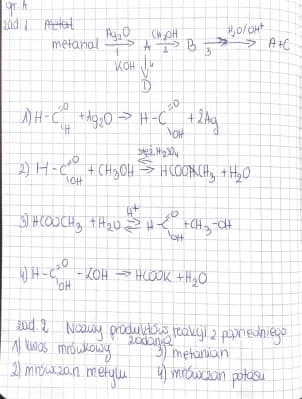 gr A
zad. 1 Metal
metanal Ag₂O → 1 A CH₃OH → 2 B H₂O/OH⁺ → 3 A+C
KOH ↓ 4
D
1) H-C=O H + Ag₂O → H-C=O OH + 2Ag
2) H-C=O OH + CH₃OH ⇄ H₂SO₄ HCOOCH₃ + H₂O
3) HCOOCH₃ + H₂O ⇄ H⁺ H-C=O OH + CH₃-OH
4) H-C=O OH - KOH → HCOOK + H₂O
zad. 2 Nazwy produktów reakcji z poprzedniego
zadania
1) kwas mrówkowy 3) metanian
2) mrówczan metylu 4) mrówczan potasu